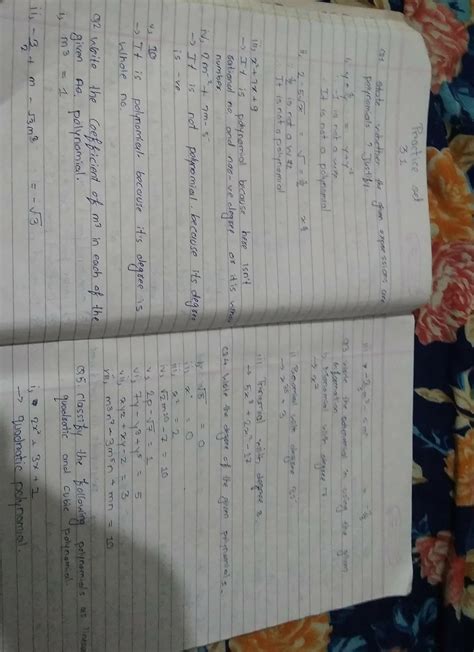 Practice set
3.1
Q1 State whether the given expressions are
polynomials? Justify.
i, y + 1/y
-1 is not a whole
It is not a polynomial
ii, 2 - 5√x
1/2 is not a whole
It is not a polynomial
iii, x² + 7x + 9
→ It is polynomial because here isn't
rational no. and non-ve degree or it is whole
number
iv, 7m³ + 7m - 5
→ It is not polynomial. because its degree
is -ve
v, 10
→ It is polynomial. because its degree is
whole no.
Q2 Write the coefficient of m³ in each of the
given polynomial.
i, m³ = 1
ii, -3/2 + m - √3m³ = -√3
Q3 Write the polynomial in using the given
information
→ x⁷
ii Binomial with degree 35
iii Trinomial with degree 8
Q4 Write the degree of the given polynomials.
i, √5 = 0
ii, x° = 0
iii, x² = 2
iv √2m¹⁰ - 7 = 10
v, 2p - √7 = 1
vi, 7y - y³ + y⁵ = 5
vii, xyz + xy - z = 3
viii, m³n⁷ - 3m⁵n + mn = 10
Q5 Classify the following polynomials as linear
quadratic and cubic polynomial
i, 2x² + 3x + 2
→ quadratic polynomial